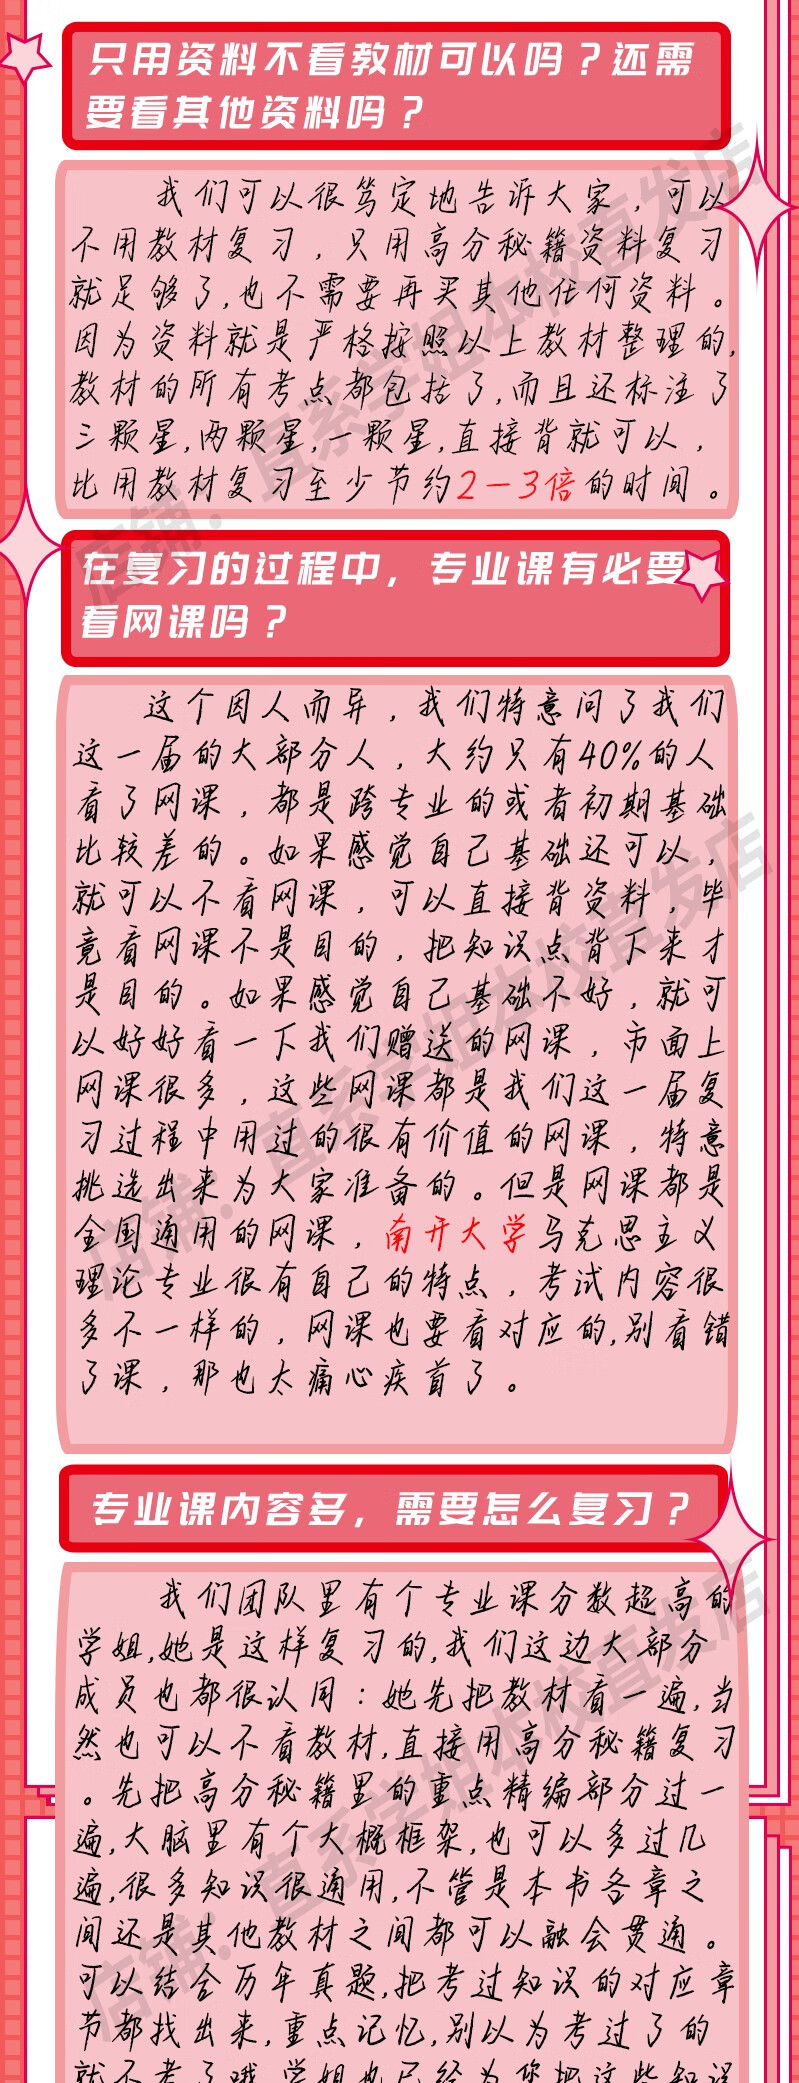 只用资料不看教材可以吗？还需
要看其他资料吗？
我们可以很笃定地告诉大家，可以
不用教材复习，只用高分秘籍资料复习
就足够了,也不需要再买其他任何资料。
因为资料就是严格按照以上教材整理的,
教材的所有考点都包括了,而且还标注了
三颗星,两颗星,一颗星,直接背就可以，
比用教材复习至少节约2-3倍的时间。
在复习的过程中，专业课有必要
看网课吗？
这个因人而异，我们特意问了我们
这一届的大部分人，大约只有40%的人
看了网课，都是跨专业的或者初期基础
比较差的。如果感觉自己基础还可以，
就可以不看网课，可以直接背资料，毕
竟看网课不是目的，把知识点背下来才
是目的。如果感觉自己基础不好，就可
以好好看一下我们赠送的网课，市面上
网课很多，这些网课都是我们这一届复
习过程中用过的很有价值的网课，特意
挑选出来为大家准备的。但是网课都是
全国通用的网课，南开大学马克思主义
理论专业很有自己的特点，考试内容很
多不一样的，网课也要看对应的,别看错
了课，那也太痛心疾首了。
专业课内容多，需要怎么复习？
我们团队里有个专业课分数超高的
学姐,她是这样复习的,我们这边大部分
成员也都很认同：她先把教材看一遍,当
然也可以不看教材,直接用高分秘籍复习
。先把高分秘籍里的重点精编部分过一
遍,大脑里有个大概框架,也可以多过几
遍,很多知识很通用,不管是本书各章之
间还是其他教材之间都可以融会贯通。
可以结合历年真题,把考过知识的对应章
节都找出来,重点记忆,别以为考过了的
就不考了哦,学姐也已经为你把这些知识
店铺：直系学姐本校直发店
店铺：直系学姐本校直发店
店铺：直系学姐本校直发店